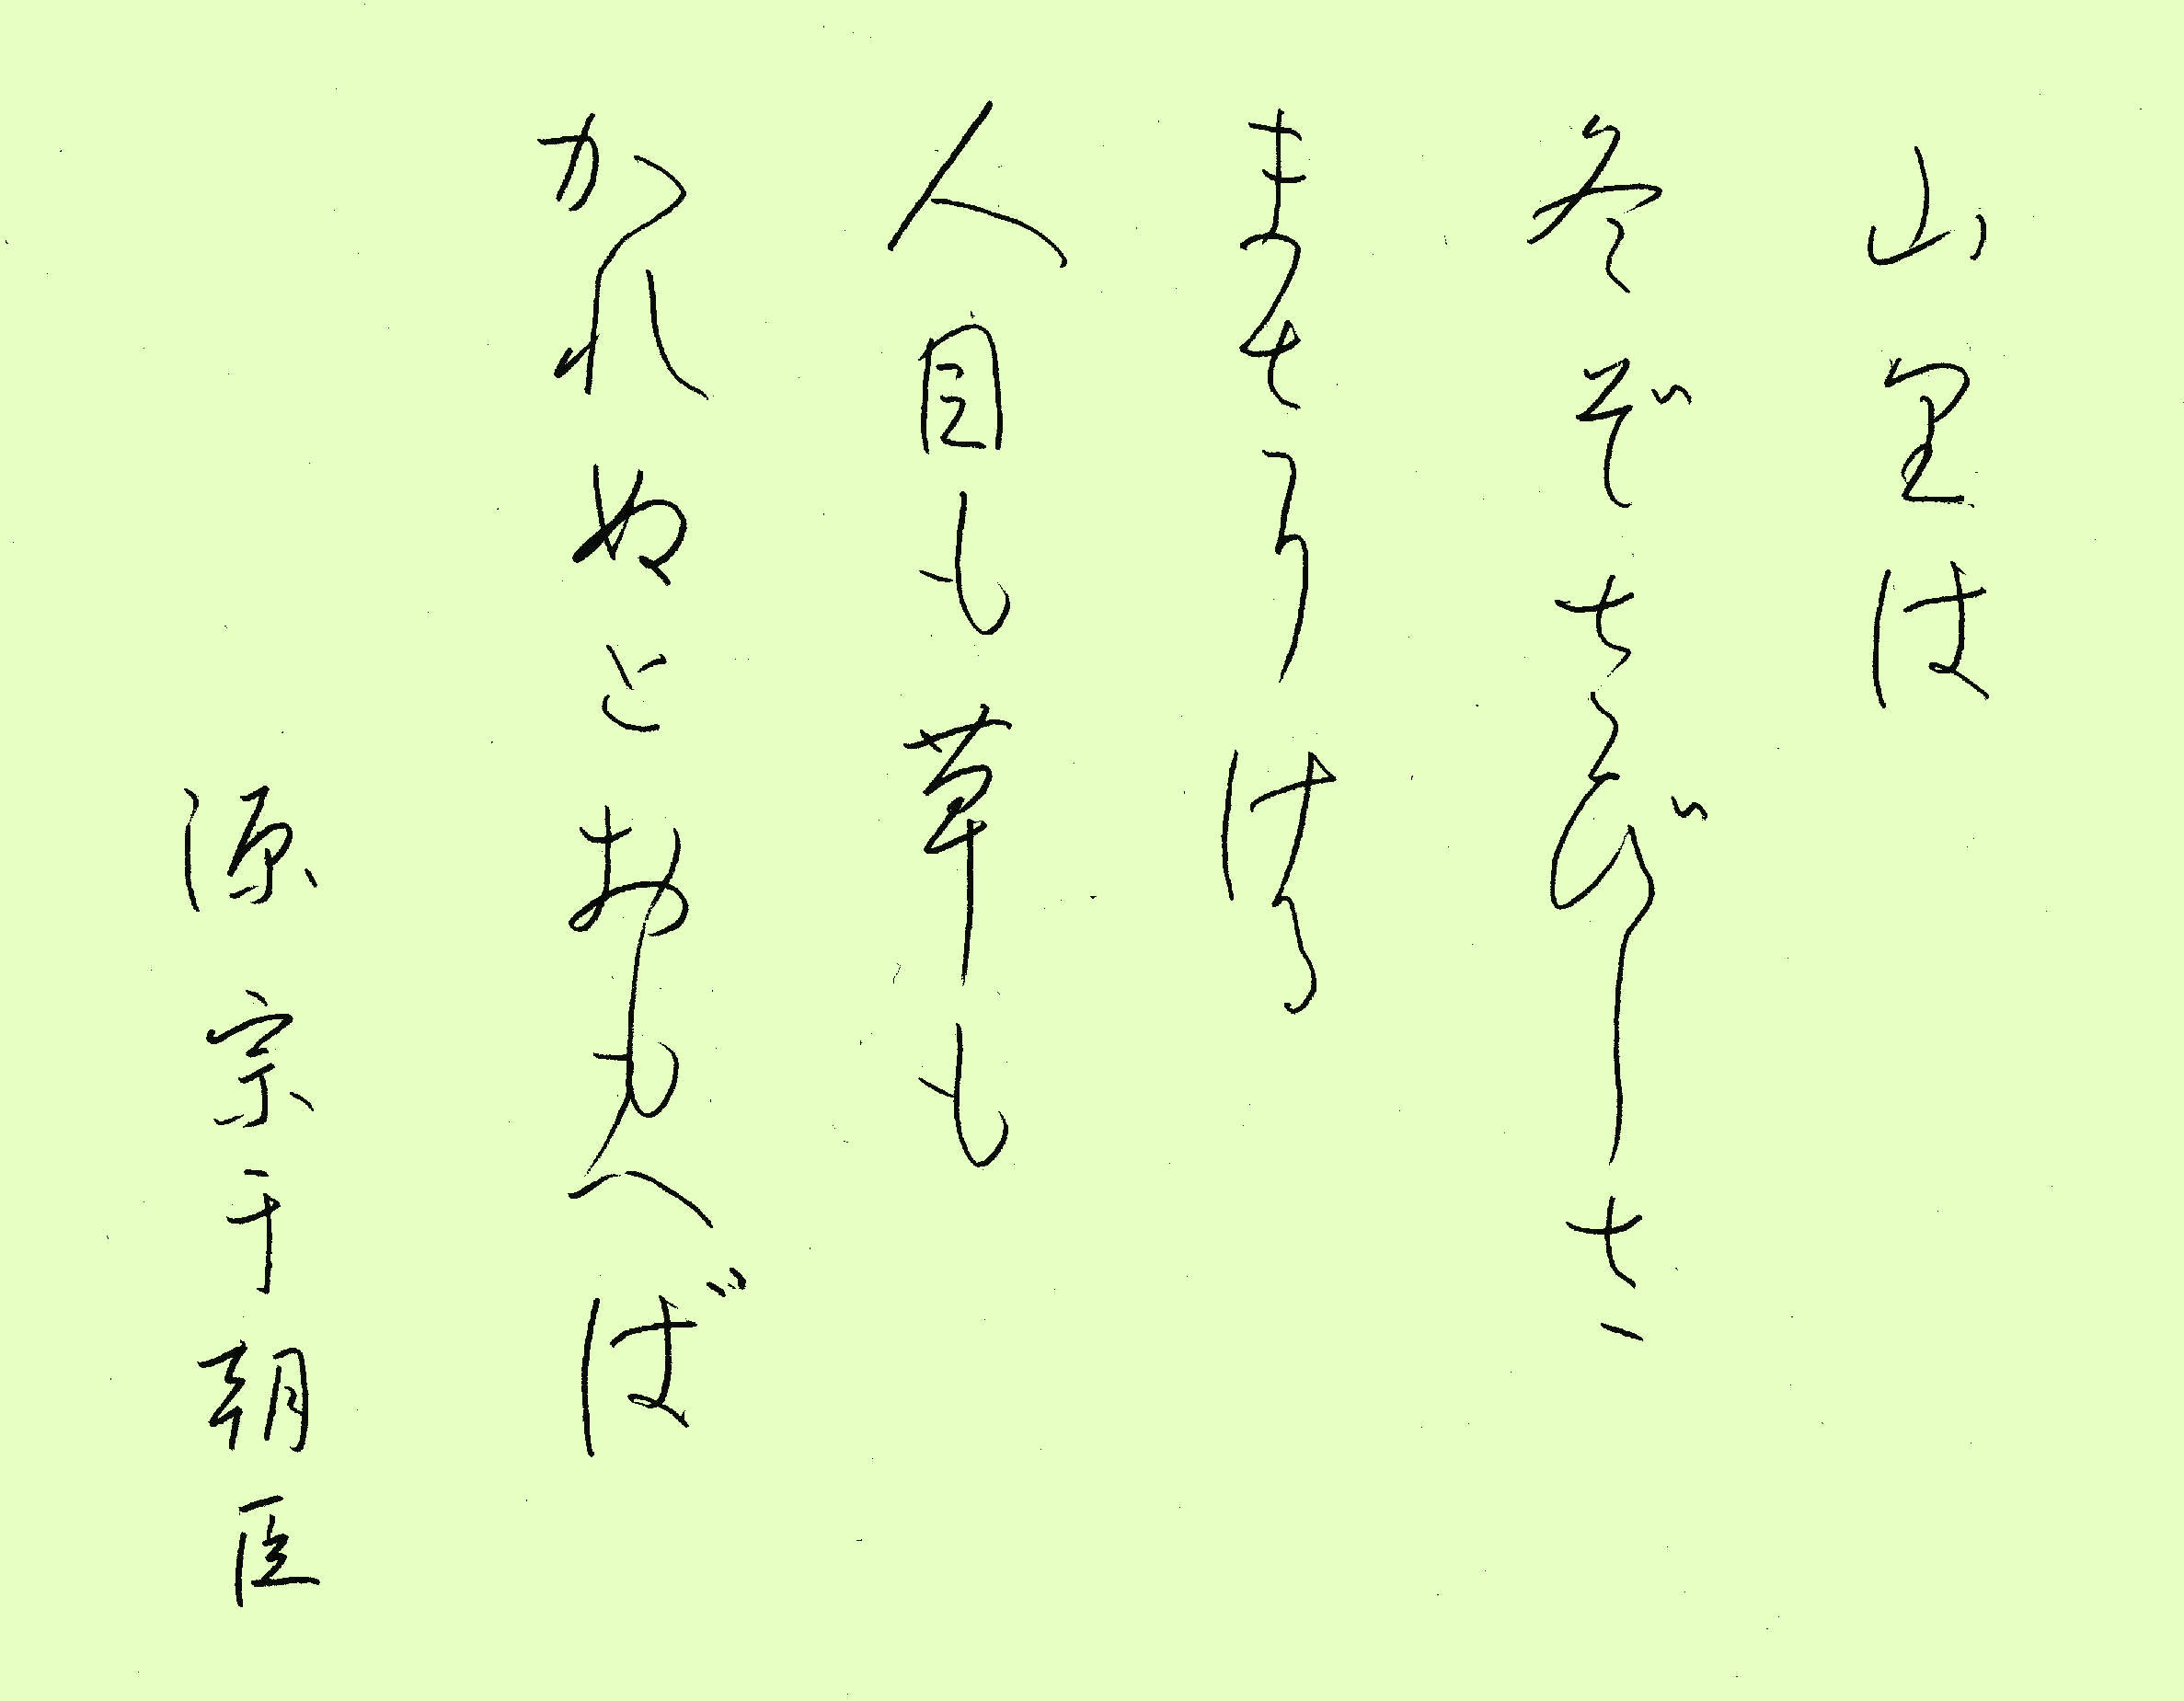 山里は
冬ぞさびしさ
まさりける
人目も草も
かれぬとおもへば
源宗于朝臣